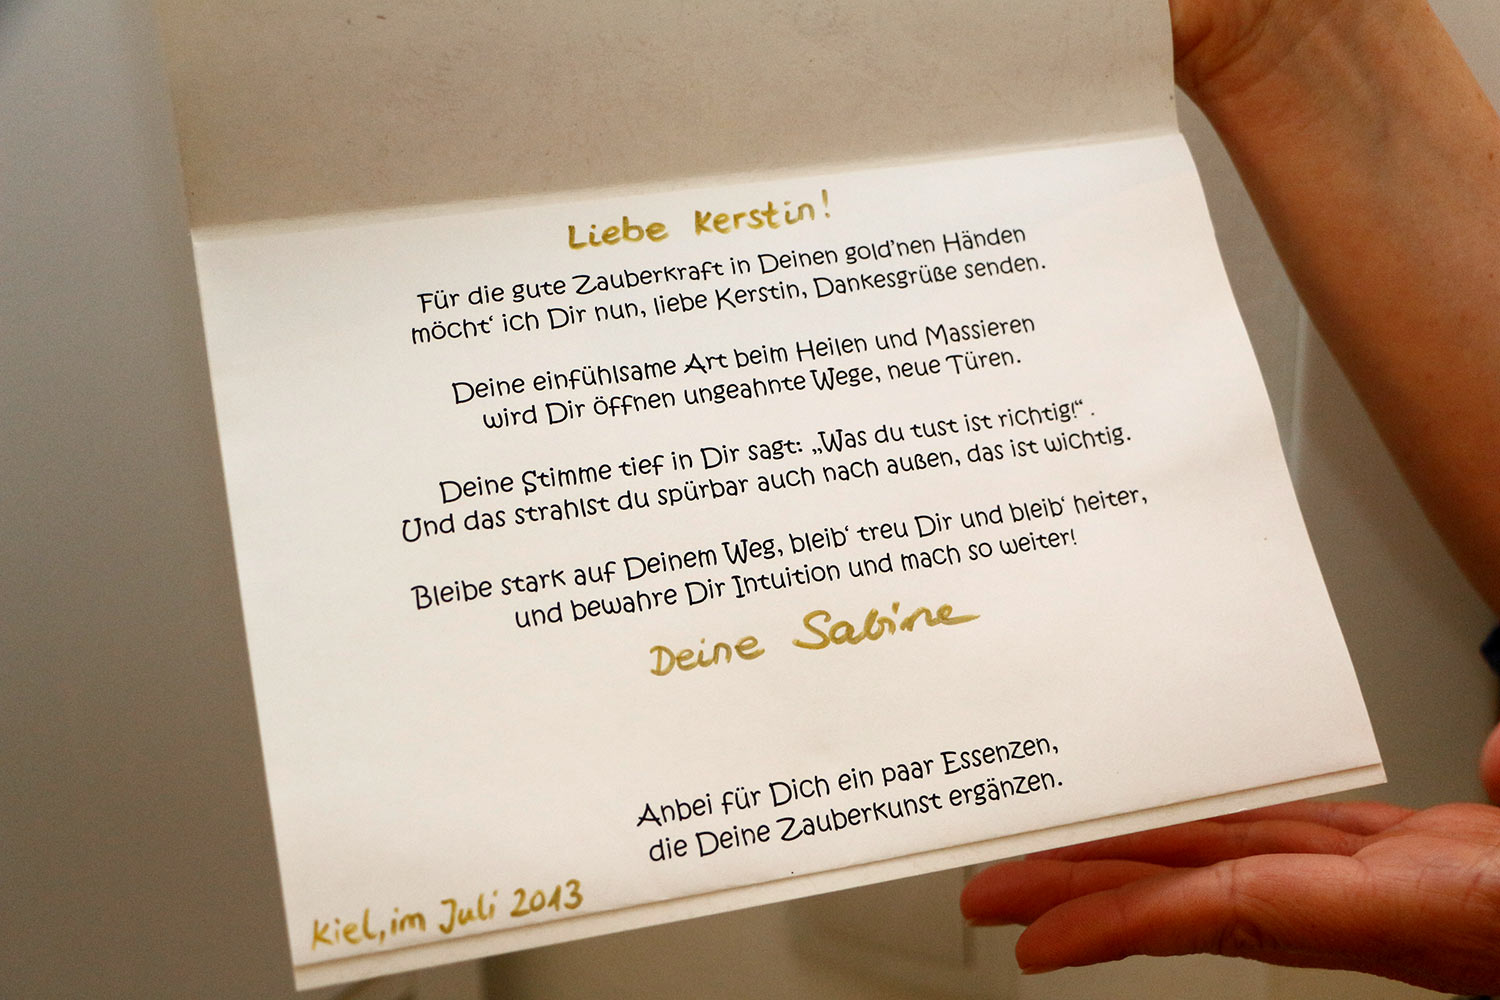 Liebe Kerstin!
Für die gute Zauberkraft in Deinen gold'nen Händen
möcht‘ ich Dir nun, liebe Kerstin, Dankesgrüße senden.
Deine einfühlsame Art beim Heilen und Massieren
wird Dir öffnen ungeahnte Wege, neue Türen.
Deine Stimme tief in Dir sagt: „Was du tust ist richtig!“ .
Und das strahlst du spürbar auch nach außen, das ist wichtig.
Bleibe stark auf Deinem Weg, bleib‘ treu Dir und bleib‘ heiter,
und bewahre Dir Intuition und mach so weiter!
Deine Sabine
Anbei für Dich ein paar Essenzen,
die Deine Zauberkunst ergänzen.
Kiel, im Juli 2013